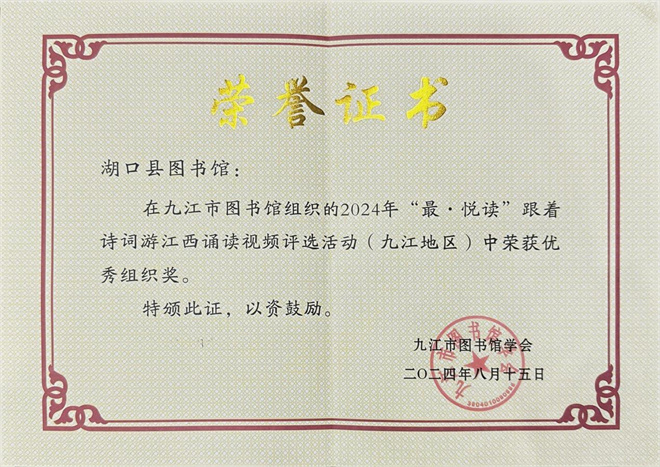 荣誉证书
湖口县图书馆：
在九江市图书馆组织的2024年“最·悦读”跟着
诗词游江西诵读视频评选活动（九江地区）中荣获优
秀组织奖。
特颁此证，以资鼓励。
九江市图书馆学会
二〇二四年八月十五日
九江市图书馆学会